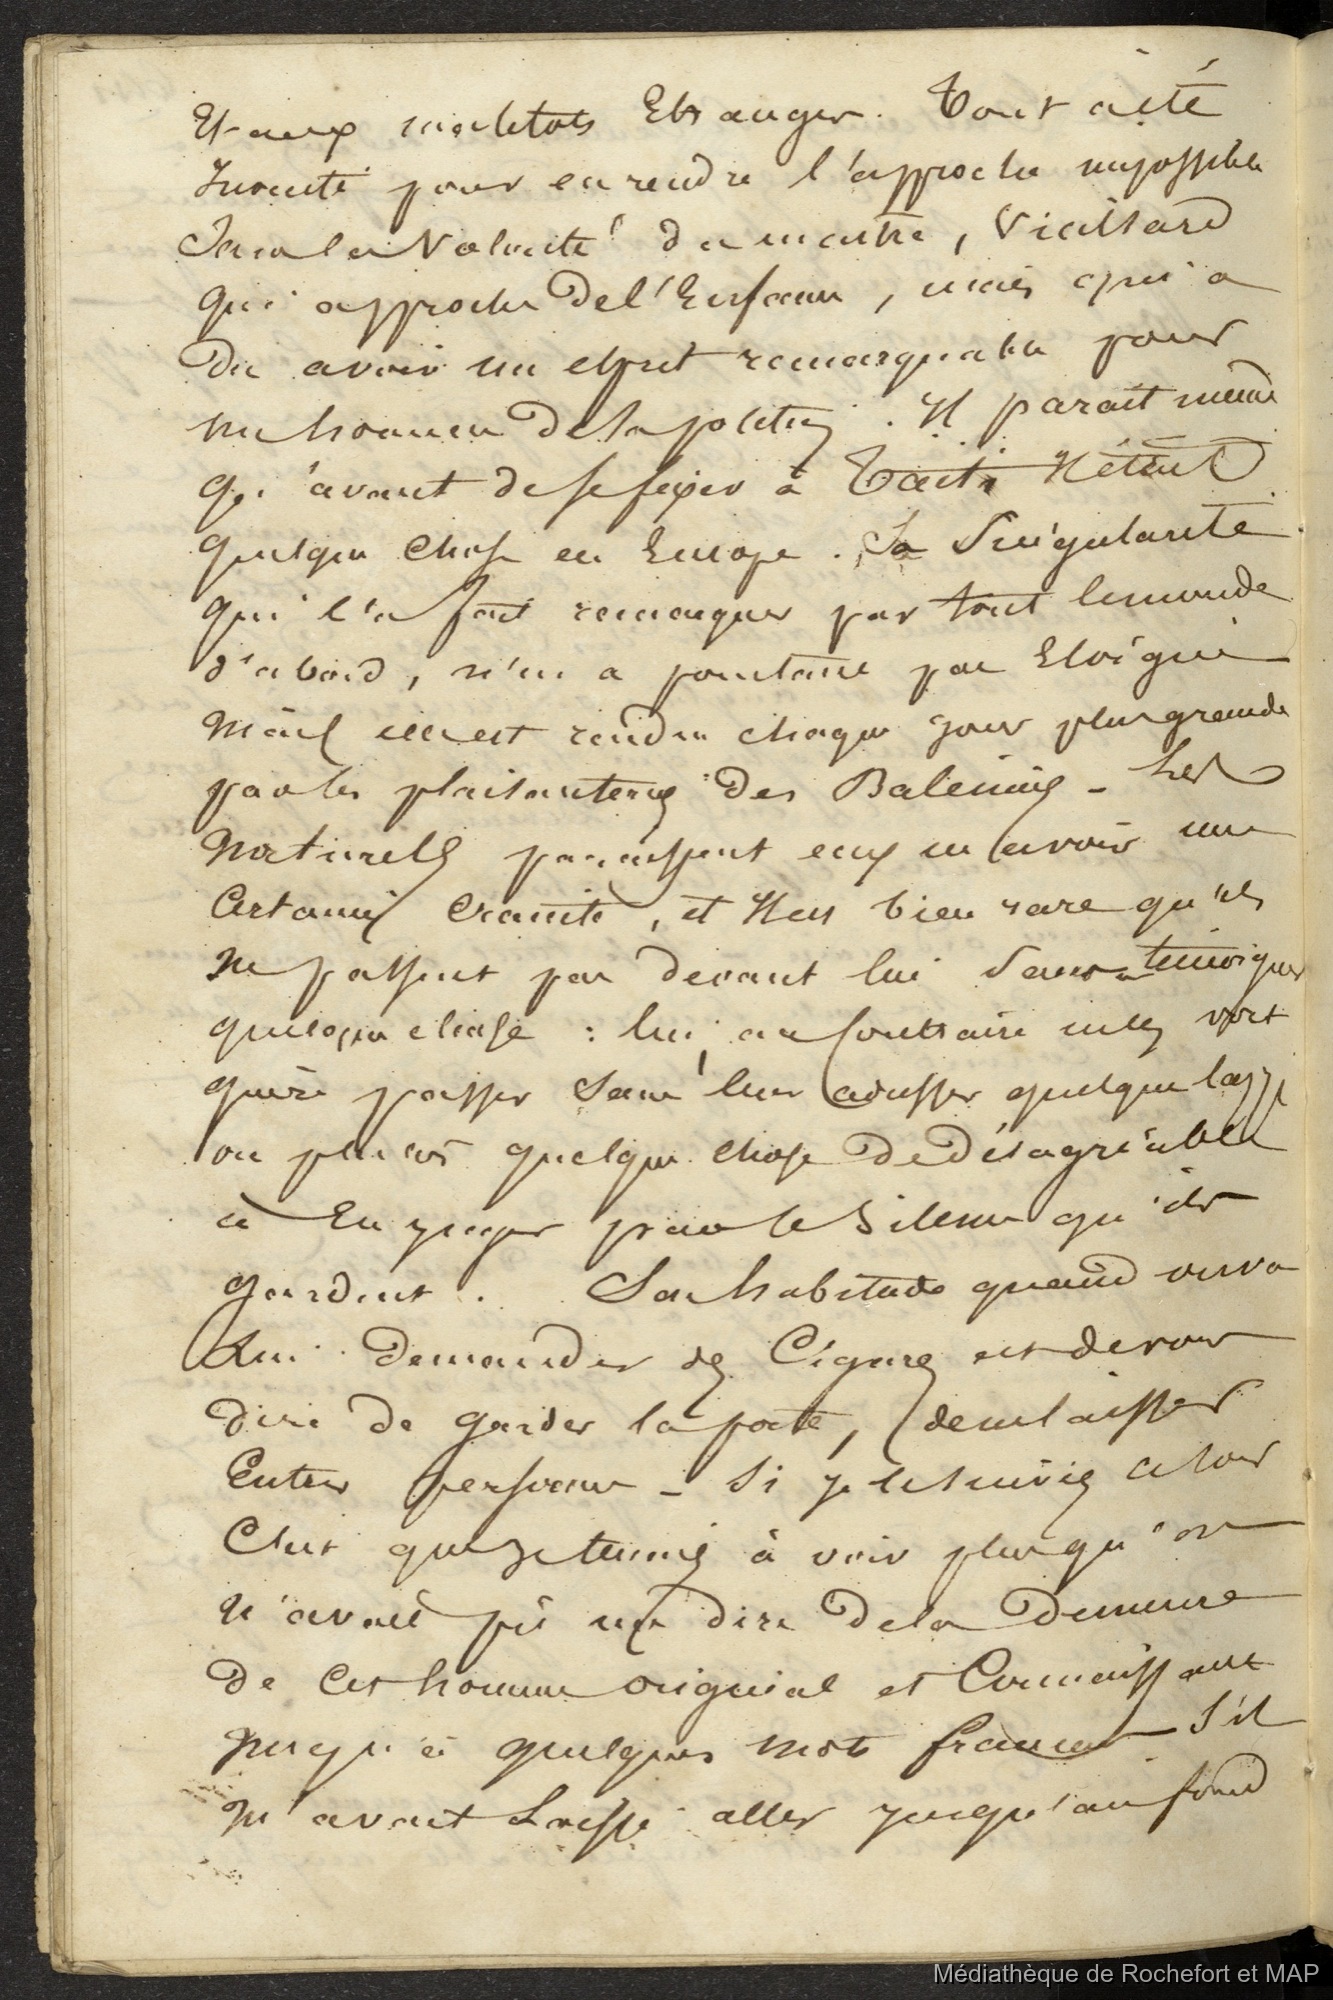 Et aux matelots Etranger. Tout a été
Inventé pour en rendre l'approche impossible
Sans la Volonté du maitre, Vieillard
qui approche De l'Enfance, mais qui a
Du avoir un esprit remarquable pour
un homme De la politiq. Il parait même
qu'avant de se fixer à Taiti Il était
quelque Chose en Europe. Sa Singularité
qui l'a fait remarquer par tout le monde
d'abord, n'en a pourtant pas Eloigné
Mais elle est rendue chaque jour plus grande
par les plaisanteries Des Baleiniers - Les
Naturels paraissent eux en avoir une
Certaine Crainte, et Il est bien rare qu'ils
ne passent par devant lui Sans témoigner
quelque chose : lui, au Contraire ne les voit
guère passer Sans leur adresser quelque lazzi
ou plutôt quelque Chose De Désagréable
à En juger par le Silence qu'ils
gardent. Son habitude quand on va
Lui Demander des Cigares est de vous
dire de garder la porte, de ne laisser
Entrer personne - Si je le suivis alors
C'est que je tenais à voir plus qu'on
n'avait pû me dire De la Demeure
De Cet homme original et Connaissant
jusqu'à quelques mots français S'il
m'avait Laissé aller jusqu'au fond
Médiathèque de Rochefort et MAP